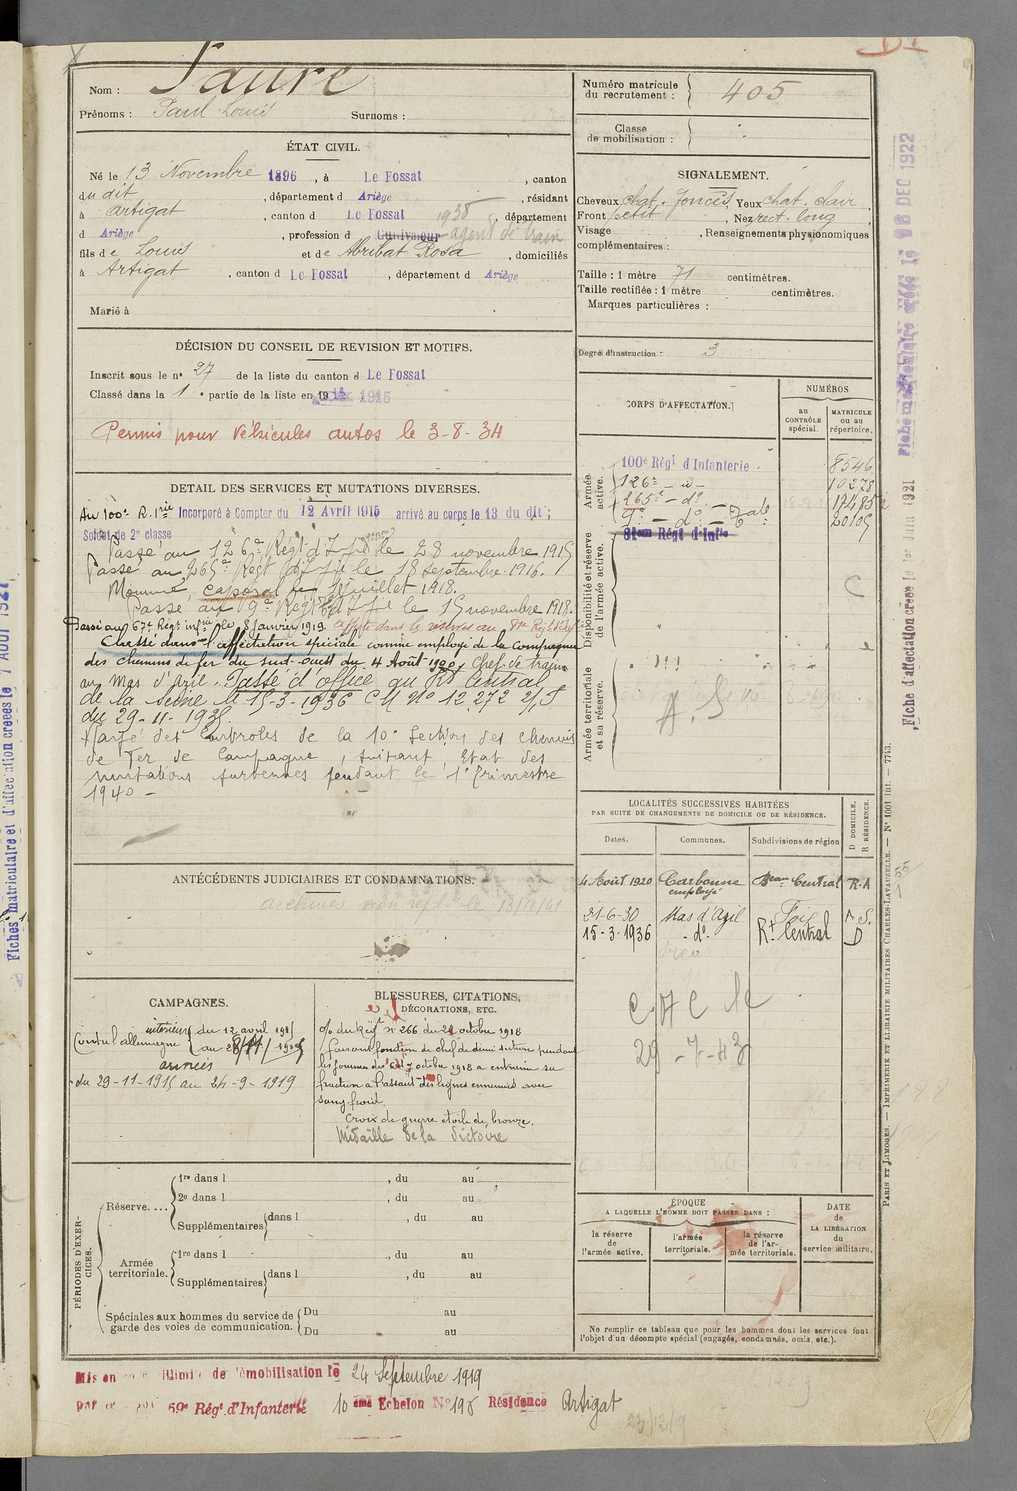 Nom : Faure
Prénoms : Paul Louis Surnoms :
Numéro matricule du recrutement : 405
Classe de mobilisation :
ÉTAT CIVIL.
Né le 13 Novembre 1896, à Le Fossat, canton
du dit, département d Ariège, résidant
à Artigat, canton d Le Fossat 1938, département
d Ariège, profession d Cultivateur agent de train
fils de Louis et de Abribat Rosa, domiciliés
à Artigat, canton d Le Fossat, département d Ariège
Marié à
SIGNALEMENT.
Cheveux chat. foncés, Yeux chat. clair
Front petit, Nez rect. long,
Visage, Renseignements physionomiques
complémentaires :
Taille : 1 mètre 71 centimètres.
Taille rectifiée : 1 mètre centimètres.
Marques particulières :
Degré d'instruction : 3
DÉCISION DU CONSEIL DE REVISION ET MOTIFS.
Inscrit sous le n° 27 de la liste du canton d Le Fossat
Classé dans la 1e partie de la liste en 1915
Permis pour véhicules autos le 3-8-34
DÉTAIL DES SERVICES ET MUTATIONS DIVERSES.
Au 100e R. Irie Incorporé à Compter du 12 Avril 1915 arrivé au corps le 13 du dit ;
Soldat de 2e classe
Passé au 126e Régt d'Ifie le 28 novembre 1915
Passé au 265e Régt d'Ifie le 18 septembre 1916.
Nommé caporal le juillet 1918.
Passé au 9e Régt d'Ifie le 15 novembre 1918.
Passé au 67e Régt infrie le 8 janvier 1919. affecté dans la réserve au
Classé dans l'affectation spéciale comme employé de la Compagnie
des chemins de fer du sud-ouest du 4 Août 1920, chef de train
au Mas d'Azil. Passé d'office au Rt Central
de la Seine le 15-3-1936 CM N° 12.272
du 29-11-1935.
Rayé des Controles de la 10e Section des chemins
de fer de Campagne, suivant Etat des
mutations survenues pendant le 1er Trimestre
1940 -
CORPS D'AFFECTATION.
NUMÉROS
au CONTRÔLE spécial.
MATRICULE ou au répertoire.
Armée active.
100e Régt d'Infanterie 8546
126e - d° - 10278
265e - d° - 12485
9e - d° - 20109
81ème Régt d'Inftie
Disponibilité et réserve de l'armée active.
Armée territoriale et sa réserve.
A. S
LOCALITÉS SUCCESSIVES HABITÉES
PAR SUITE DE CHANGEMENTS DE DOMICILE OU DE RÉSIDENCE.
Dates. Communes. Subdivisions de région D DOMICILE. R RÉSIDENCE.
4 Août 1920 Carbonne employé Central R.A
21-6-30 Mas d'Azil Foix A. S.
15-3-1936 - d° - Rt Central D
29-7-43
ANTÉCÉDENTS JUDICIAIRES ET CONDAMNATIONS.
CAMPAGNES.
Contre l'allemagne
intérieur du 12 avril 1915
au 28/11/1915
armées
du 29-11-1915 au 24-9-1919
BLESSURES, CITATIONS,
DÉCORATIONS, ETC.
O/ du Régt n° 266 du 22 octobre 1918
faisant fonction de chef de demi section pendant
les journées des 6 et 7 octobre 1918 a entrainé sa
fraction à l'assaut des lignes ennemies avec
sang froid.
Croix de guerre étoile de bronze.
Médaille de la Victoire
PÉRIODES D'EXERCICES.
Réserve....
1re dans l , du au
2e dans l , du au
Supplémentaires dans l , du au
Armée territoriale.
1re dans l , du au
Supplémentaires dans l , du au
Spéciales aux hommes du service de garde des voies de communication.
Du au
Du au
ÉPOQUE
A LAQUELLE L'HOMME DOIT PASSER DANS :
la réserve de l'armée active.
l'armée territoriale.
la réserve de l'armée territoriale.
DATE de LA LIBÉRATION du service militaire.
Ne remplir ce tableau que pour les hommes dont les services font
l'objet d'un décompte spécial (engagés, condamnés, omis, etc.).
Mis en de démobilisation le 24 Septembre 1919
par 59e Régt d'Infanterie 10 ème Echelon N° 198 Résidence Artigat
Fiche matriculaire créée le DEC 1922
Fiche d'affectation créée le 1er Juin 1921
PARIS ET LIMOGES. — IMPRIMERIE ET LIBRAIRIE MILITAIRES CHARLES-LAVAUZELLE. — N° 1001 int. — 7743.
Fiches matriculaire et d'affectation créées le 7 AOUT 1927